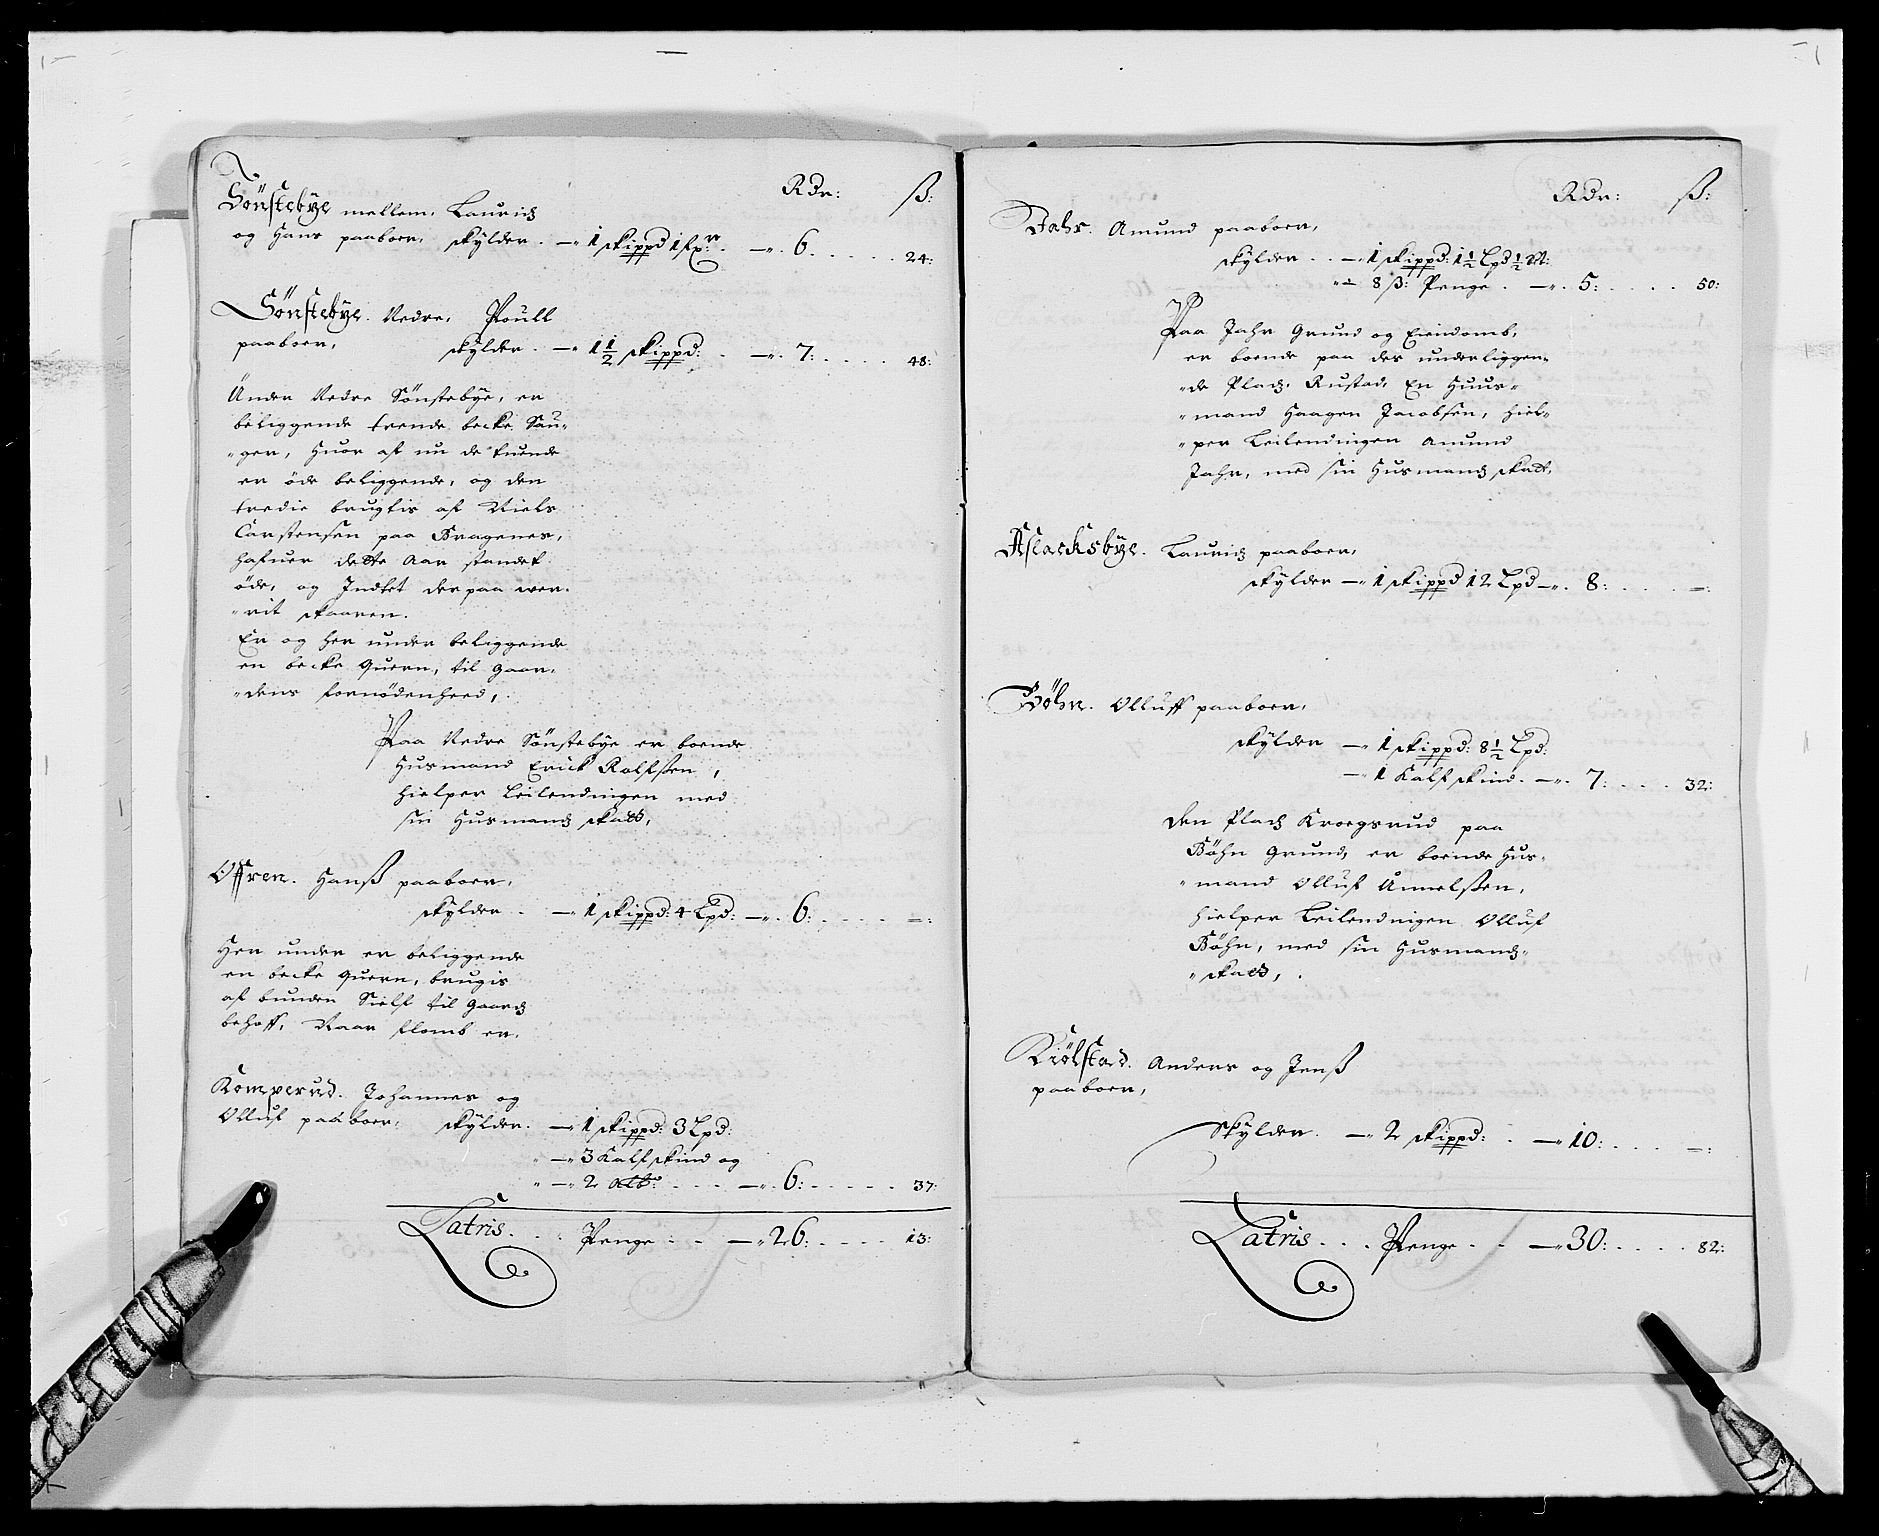 Rdr: ß:
Sønstebÿe mellem, Lauridz
og Hans paaboer, skÿlder. — 1 skippd 1 fxr. —. 6. . . . . 24:
Sønstebÿe. Nedre, Poüll
paaboer, skÿlder. — 1½ skippd: . —. 7: . . . . 48:
Under Nedre Sønstebÿe, er
beliggende trende becke Sau-
-ger, Huor af nu de tuende
er øde beliggende, og den
tredie brugtis af Niels
Carstensen paa Bragenes,
hafuer dette Aar standet
øde, og Indtet der paa wer-
-rit skaaren.
Er og her under beliggende
en becke Quern, til Gaar-
-dens fornødenheed,
Paa Nedre Sønstebÿe er boende
Husmand Erick Rolfsen,
hielper Leilendingen med
sin Husmandz skatt,
Offren. Hanß paaboer,
skÿlder. . — 1 skippd: 4 Lpd: —. 6: . . . . —:
Her under er beliggende
en becke Quern, brugis
af bunden Sielf til Gaardz
behoff, Naar flomb er.
Komperud. Johannes og
Olluf paaboer, skÿlder. — 1 skippd: 3 Lpd:
" — 3 Kalfskind og
" — 2 alb: . . . . —. 6: . . . . . 37:
Latris. . . Penge . . — 26: . . . . 13:
Rdr: ß:
Jahr. Amund paaboer,
skÿlder. . — 1 skippd: 1½ Lpd ½
" — 8 ß: Penge. —. 5: . . . . 50:
Paa Jahr Grund og Eiendomb,
er boende paa des underliggen-
-de Pladz, Rustad, En Huus-
-mand Haagen Jacobsen, hiel-
-per Leilendingen Amund
Jahr, med sin Husmandz skatt,
Aslacksbÿe. Lauridz paaboer,
skÿlder — 1 skippd 12 Lpd —. 8: . . . . —:
Bøhn. Olluff paaboer,
skÿlder — 1 skippd: 8½ Lpd:
— 1 Kalfskind. —. 7: . . . . 32:
Den Pladz Kroegsrud paa
Bøhn Grund, er boende Hus-
-mand Olluf Ammelsen,
hielper Leilendingen Olluf
Bøhn, med sin Husmandz-
-skatt, .
Kiølstad. Anders og Jenß
paaboer,
Skÿlder. — 2 skippd: . — 10: . . . . —:
Latris. . . Penge . . — 30: . . . . 82: